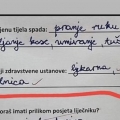 jenu tijela spada: pranje ruku
ljanje kose, umivanje, tuš
di zdravstvene ustanove: ljekarna,
lnica
oraš imati prilikom posjeta liječniku?